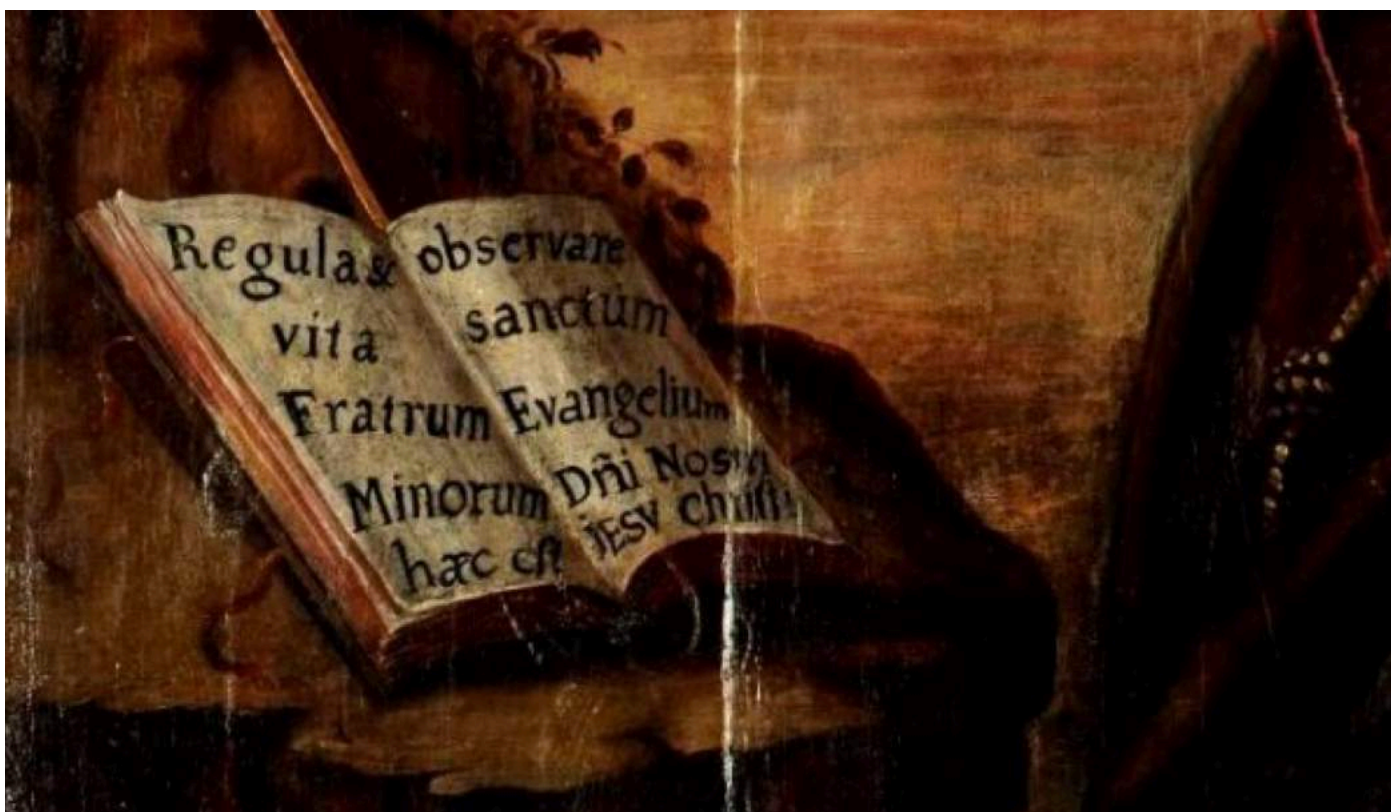 Regula &
vita
Fratrum
Minorum
hæc est
observare
sanctum
Evangelium
Dñi Nostri
jESV christi